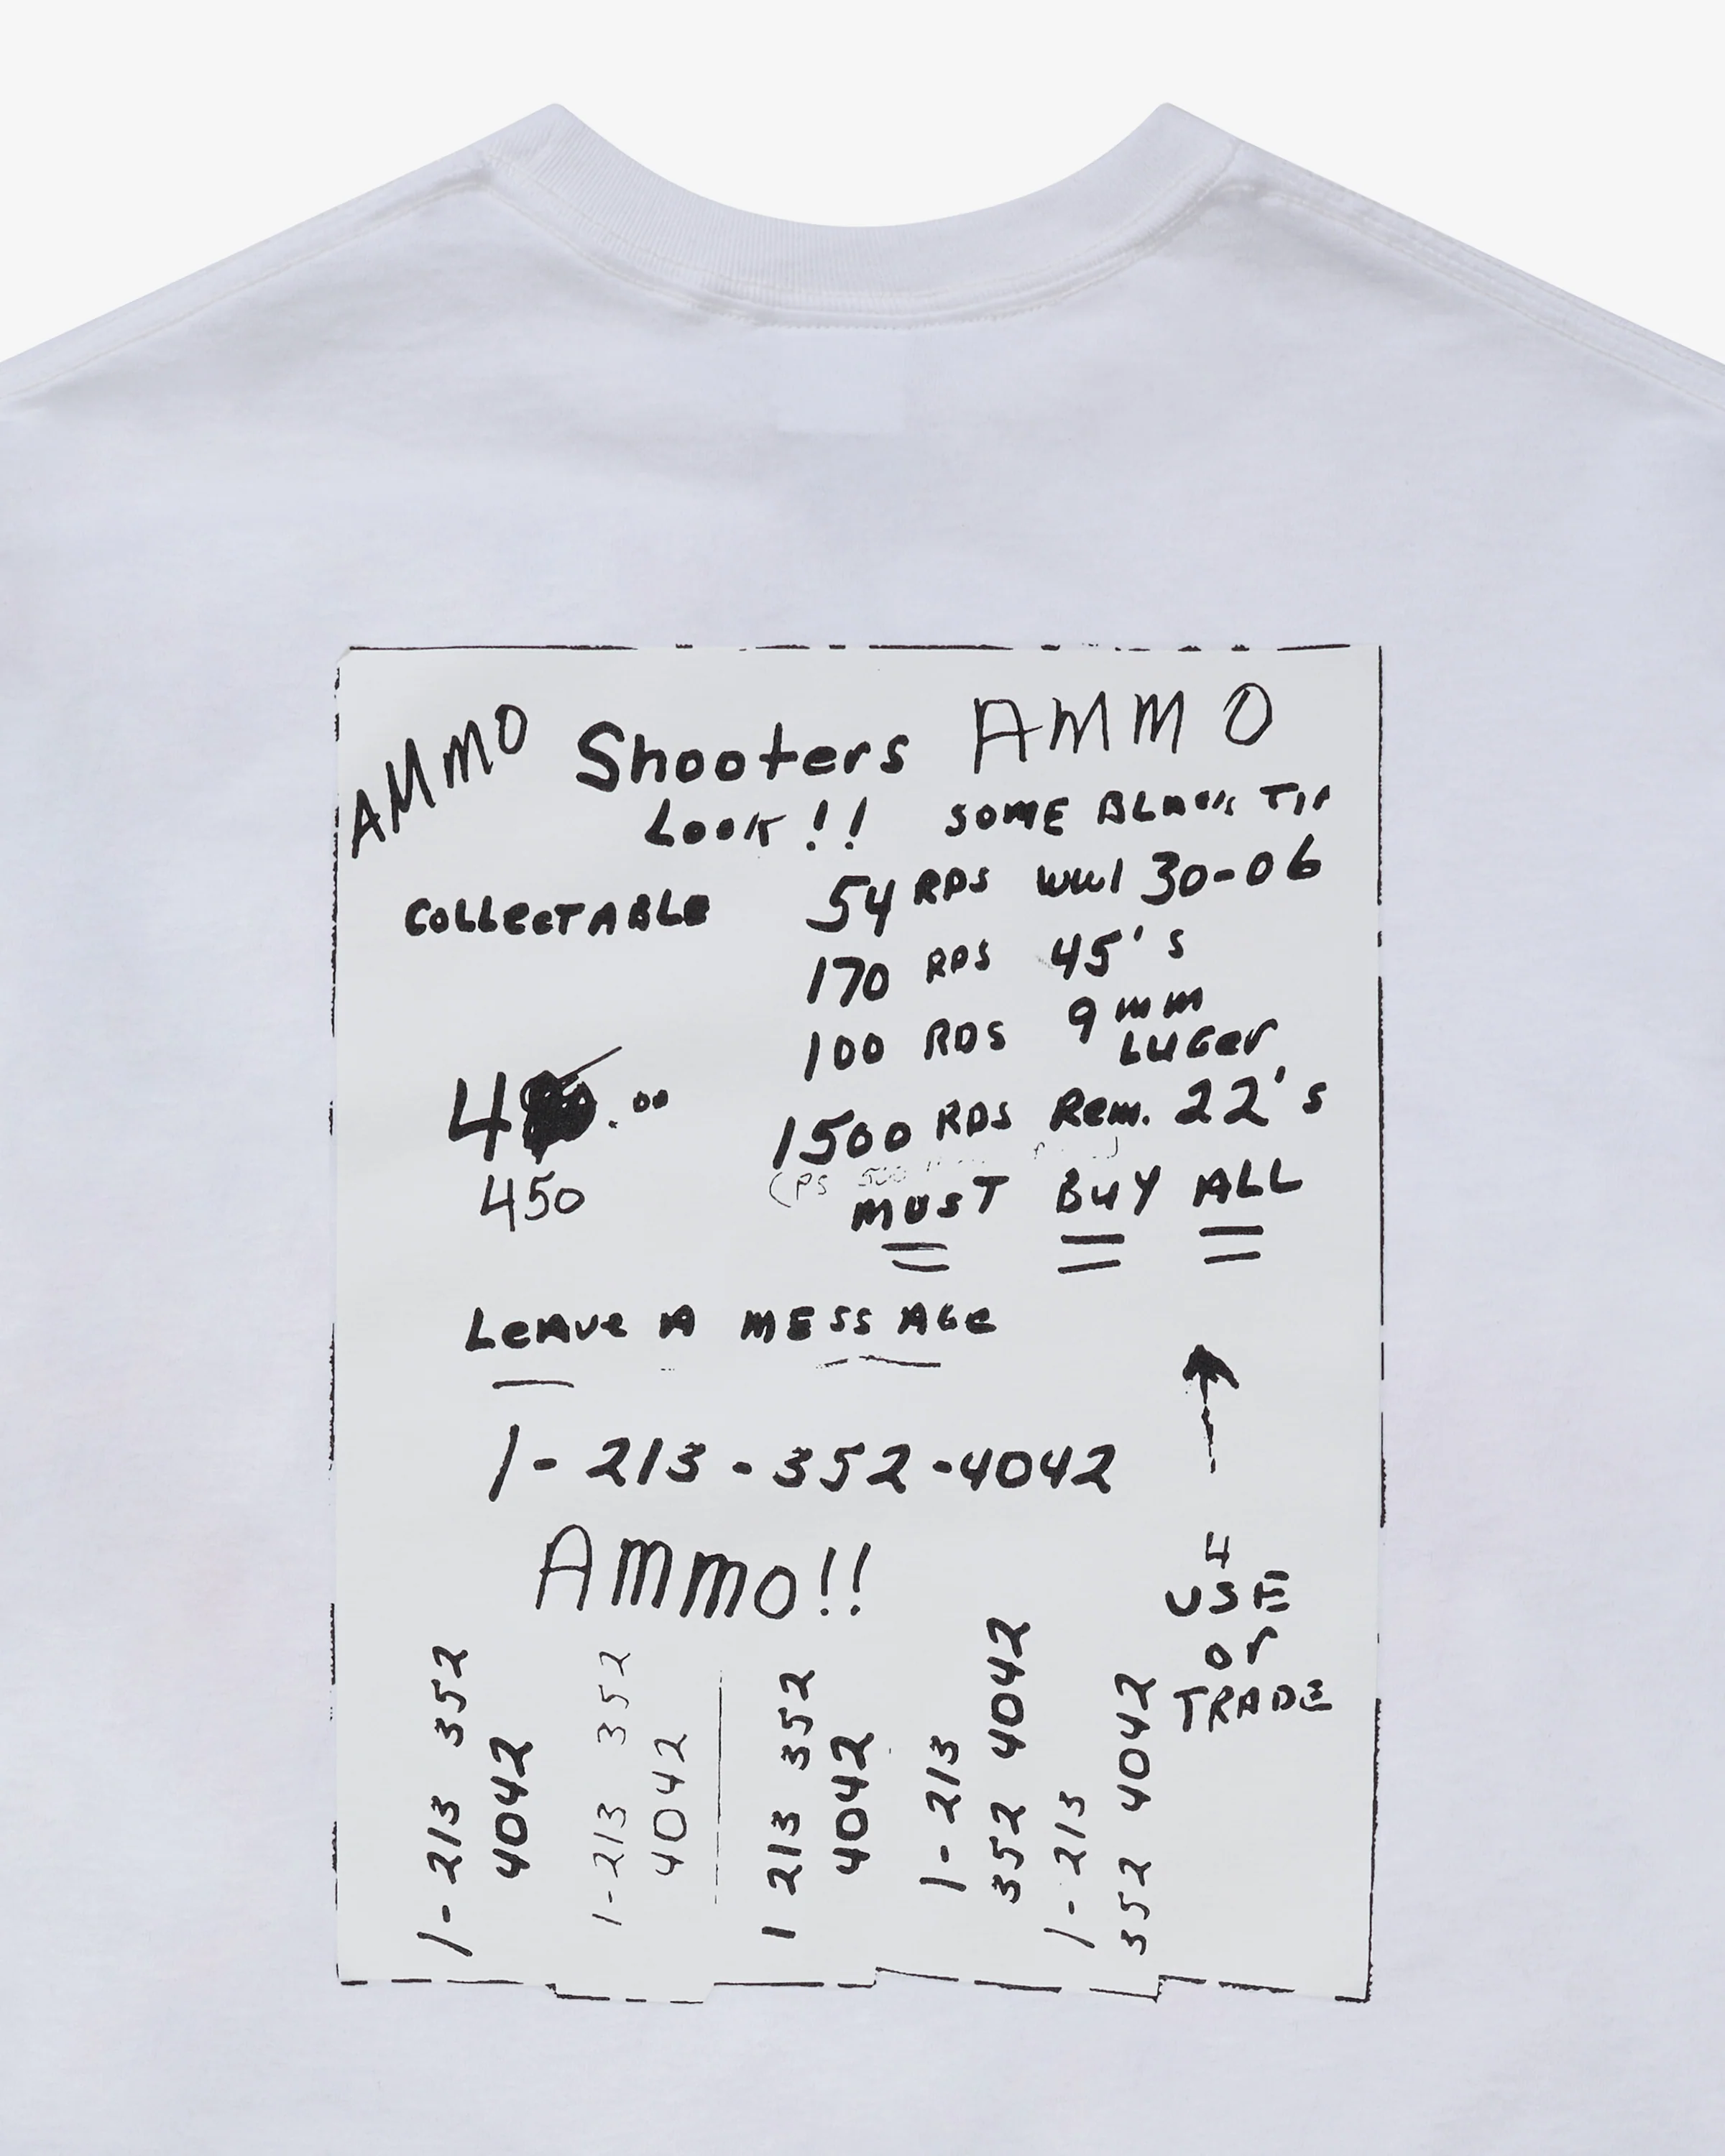 AMMO Shooters AMMO
Look!! SOME BLACK TIP
COLLECTABLE 54 RDS WW1 30-06
170 RDS 45's
100 RDS 9mm
LUGer
4 .00 1500 RDS Rem. 22's
(PS 500
450 MUST BUY ALL
LeAve A MESSAGe
1-213-352-4042
AMMO!!
4
USE
or
TRADE
1-213 352
4042
1-213 352
4042
1 213 352
4042
1-213
352 4042
1-213
352 4042